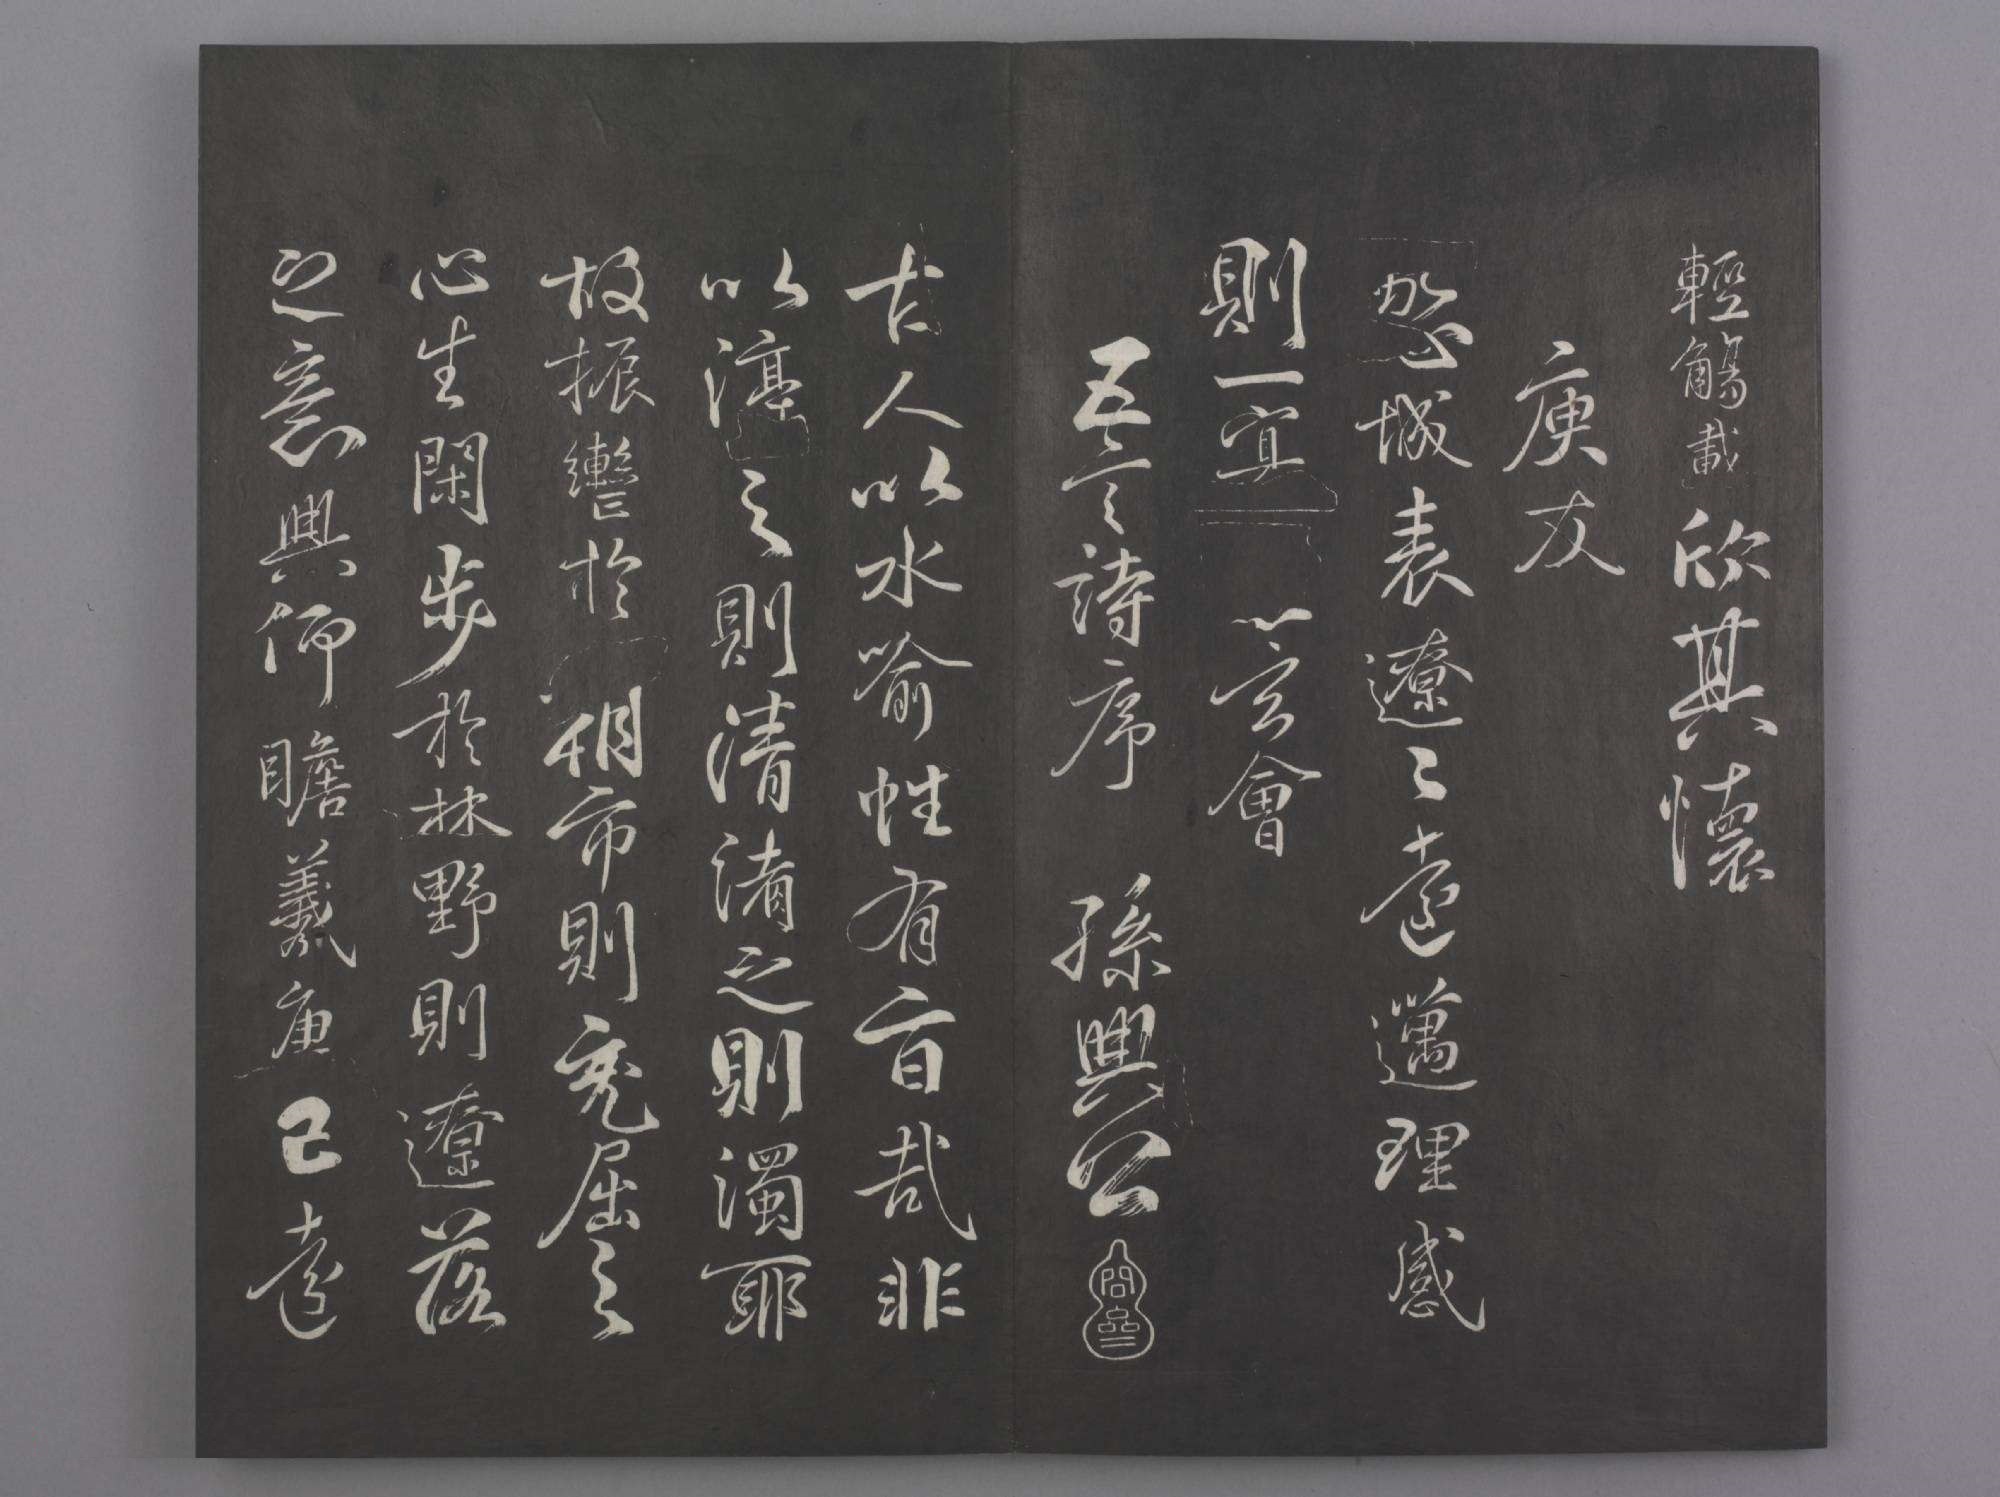 輕觴載欣其懷
庾友
域表遼〻遠邁理感
則一玄會
五言詩序 孫興公
古人以水喻性有旨哉非
以渟之則清淆之則濁耶
故振轡於朝市則充屈之
心生閑步於林野則遼落
之意興仰瞻羲唐已遠